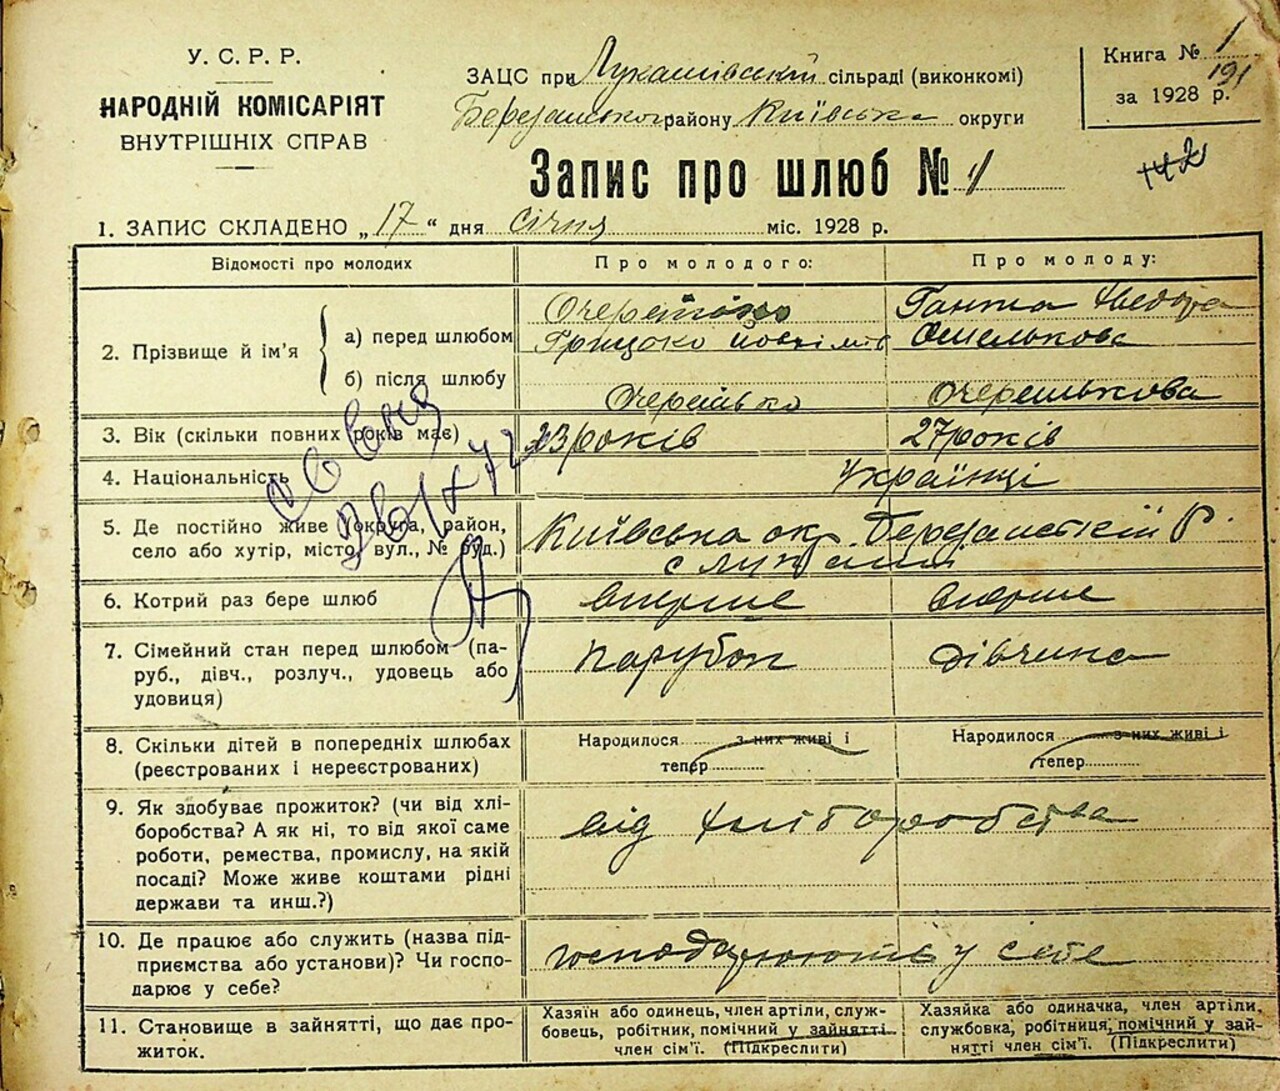 У. С. Р. Р.
НАРОДНІЙ КОМІСАРІЯТ
ВНУТРІШНІХ СПРАВ
ЗАЦС при Лукашівській сільраді (виконкомі)
Березанського району Київська округи
Книга № 1
за 1928 р. 191
142
Запис про шлюб № 1
1. ЗАПИС СКЛАДЕНО „17“ дня січня міс. 1928 р.
Відомості про молодих
Про молодого:
Про молоду:
2. Прізвище й ім'я
а) перед шлюбом
б) після шлюбу
Очеретько
Грицько
Ганжа Хведора
Омелькова
Очеретько
Очеретькова
3. Вік (скільки повних років має)
23 років
27 років
4. Національність
Українці
5. Де постійно живе (округа, район,
село або хутір, місто, вул., № буд.)
Київська окр. Березанській р.
с
6. Котрий раз бере шлюб
вперше
вперше
7. Сімейний стан перед шлюбом (па-
руб., дівч., розлуч., удовець або
удовиця)
парубок
дівчина
8. Скільки дітей в попередніх шлюбах
(реєстрованих і нереєстрованих)
Народилося з них живі і
тепер
Народилося з них живі і
тепер
9. Як здобуває прожиток? (чи від хлі-
боробства? А як ні, то від якої саме
роботи, ремества, промислу, на якій
посаді? Може живе коштами рідні
держави та инш.?)
від хліборобства
10. Де працює або служить (назва під-
приємства або установи)? Чи госпо-
дарює у себе?
господарюють у себе
11. Становище в зайнятті, що дає про-
житок.
Хазяїн або одинець, член артіли, служ-
бовець, робітник, помічний у зайнятті
член сім'ї. (Підкреслити)
Хазяйка або одиначка, член артіли,
службовка, робітниця, помічний у зай-
нятті член сім'ї. (Підкреслити)